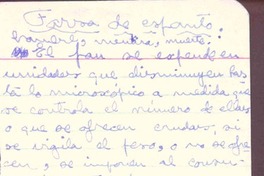 Farsa de espanto:
mentira, muerte.
El pan se expende en
unidades que disminuyen has
ta lo microscópico a medida que
se controla el número de ellas
o que se ofrecen crudas, si
se vigila el peso, o no se ofre
cen, se imponen al consu-